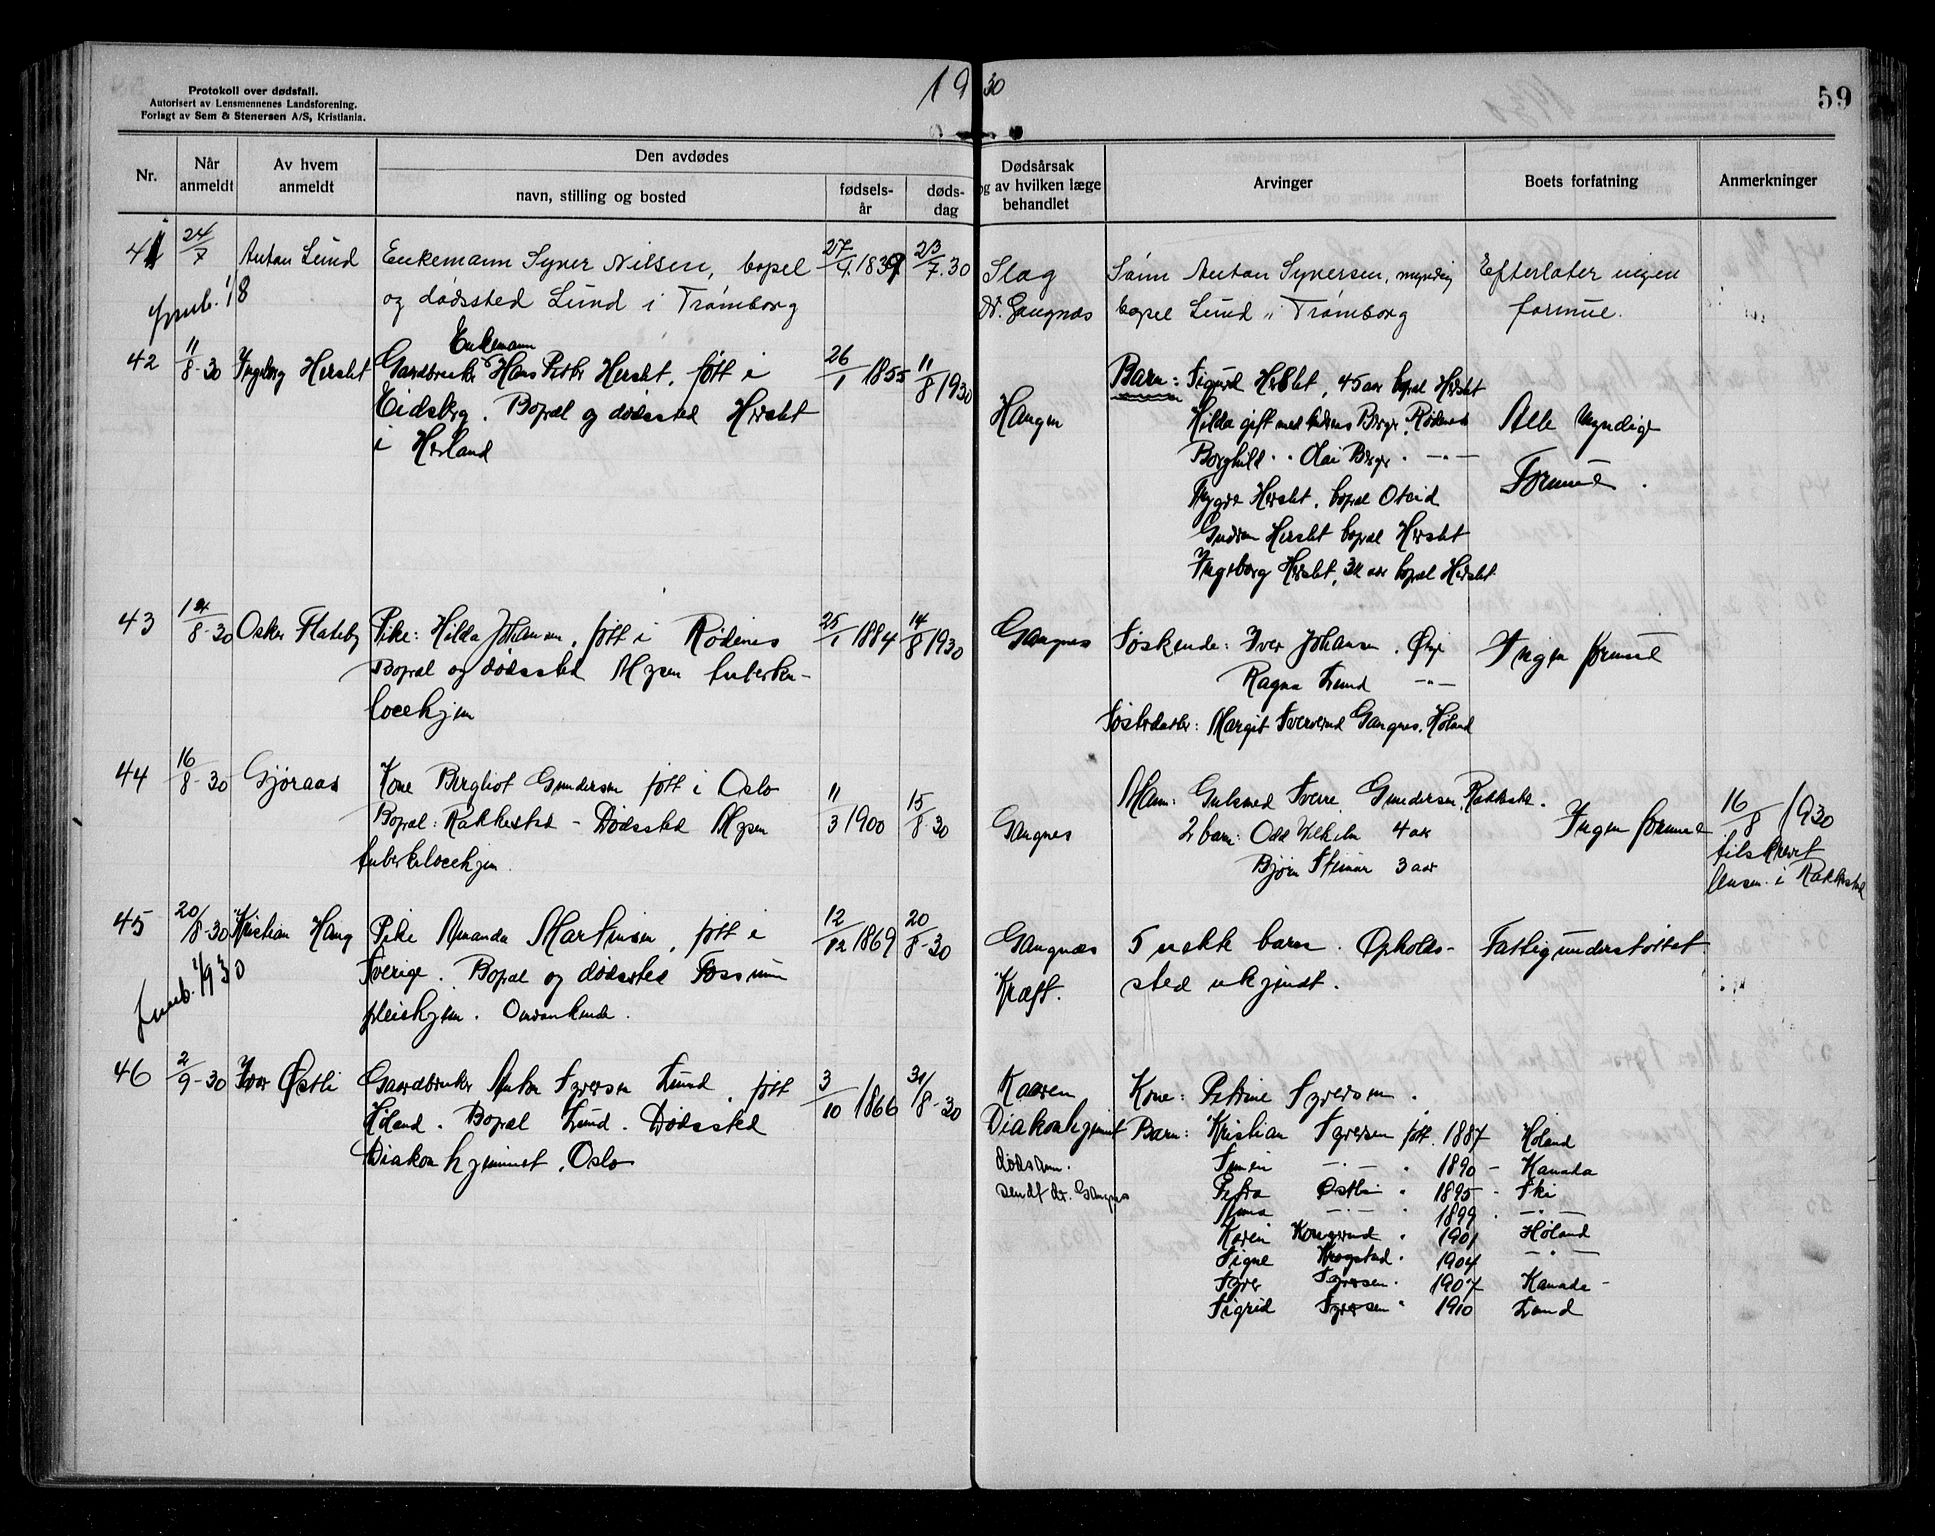 Protokoll over dødsfall.
Autorisert av Lensmennenes Landsforening.
Forlagt av Sem & Stenersen A/S, Kristiania.
1930
59
Nr.
Når anmeldt
Av hvem anmeldt
Den avdødes
navn, stilling og bosted
fødsels-år
døds-dag
Dødsårsak og av hvilken læge behandlet
Arvinger
Boets forfatning
Anmerkninger
41 24/7 Anton Lund
Enkemann Syver Nilsen, bopel
og dødssted Lund i Trømborg
27/4.1839 23/7.30
Slag
Dr. Gangnæs
Sønn Anton Syversen, myndig
bopel Lund i Trømborg
Efterlater ingen
formue.
42 11/8-30 Ingeborg Herslet
Enkemann
Gardbruker Hans Peter Herslet, født i
Eidsberg. Bopæl og dødssted Herslet
i Herland
26/1 1855 11/8 1930
Haugen
Barn: Sigurd Herslet, 45 aar bopæl Herslet
Hilda gift med Berger, Rødenes
Borghild " " Olai Berger " — " —
Trygve Herslet, bopæl Otteid
Gudrun Herslet bopæl Herslet
Ingeborg Herslet, aar bopæl Herslet
Alle Myndige
Formue.
43 14/8-30 Oskar Flateby
Pike: Hilda Johansen, født i Rødenes
Bopæl og dødssted Mysen tuberku-
losehjem
25/1 1884 14/8 1930
Gangnes
Søskende: Iver Johansen.
Ragna Lund — " —
Søsterdatter: Margit Gangnes, Høland
Ingen formue
44 16/8-30 Gjøraas
Kone Bergliot Gundersen født i Oslo
Bopæl: Rakkestad - Dødssted Mysen
tuberkulosehjem.
11/3 1900 15/8-30
Gangnes
Mann: Gulsmed Sverre Gundersen, Rakkestad.
2 barn: Odd Vilhelm 4 aar
Bjørn Steinar 3 aar
Ingen formue
16/8 1930
tilskrevet
lensm. i Rakkestad
45 20/8-30 Kristian Haug
Pike Amanda Martinsen, født i
Sverige. Bopæl og dødssted Fossum
pleiehjem. Omvankende.
12/12 1869 20/8-30
Gangnæs
Kræft.
5 uekte barn. Opholds-
sted ukjendt.
Fattigunderstøttet
46 2/9-30 Ivar Østli
Gaardbruker Anton Syversen Lund, født
Høland. Bopæl Lund. Dødssted
Diakonhjemmet, Oslo
3/10 1866 31/8-30
Kaaren
Diakonhjemmet
dødsanm.
sendt dr. Gangnes
Kone: Petrine Syversen.
Barn: Kristian Syversen født. 1887 Høland
Simen — " — " 1890 - Kanada
Petra Østli " 1895 - Ski
Anna — " — " 1899 " — " —
Karen Kongerud " 1901 Høland
Signe Krogstad " 1904 — " —
Syver Syversen " 1907 Kanada -
Sigrid Syversen " 1910 Lund